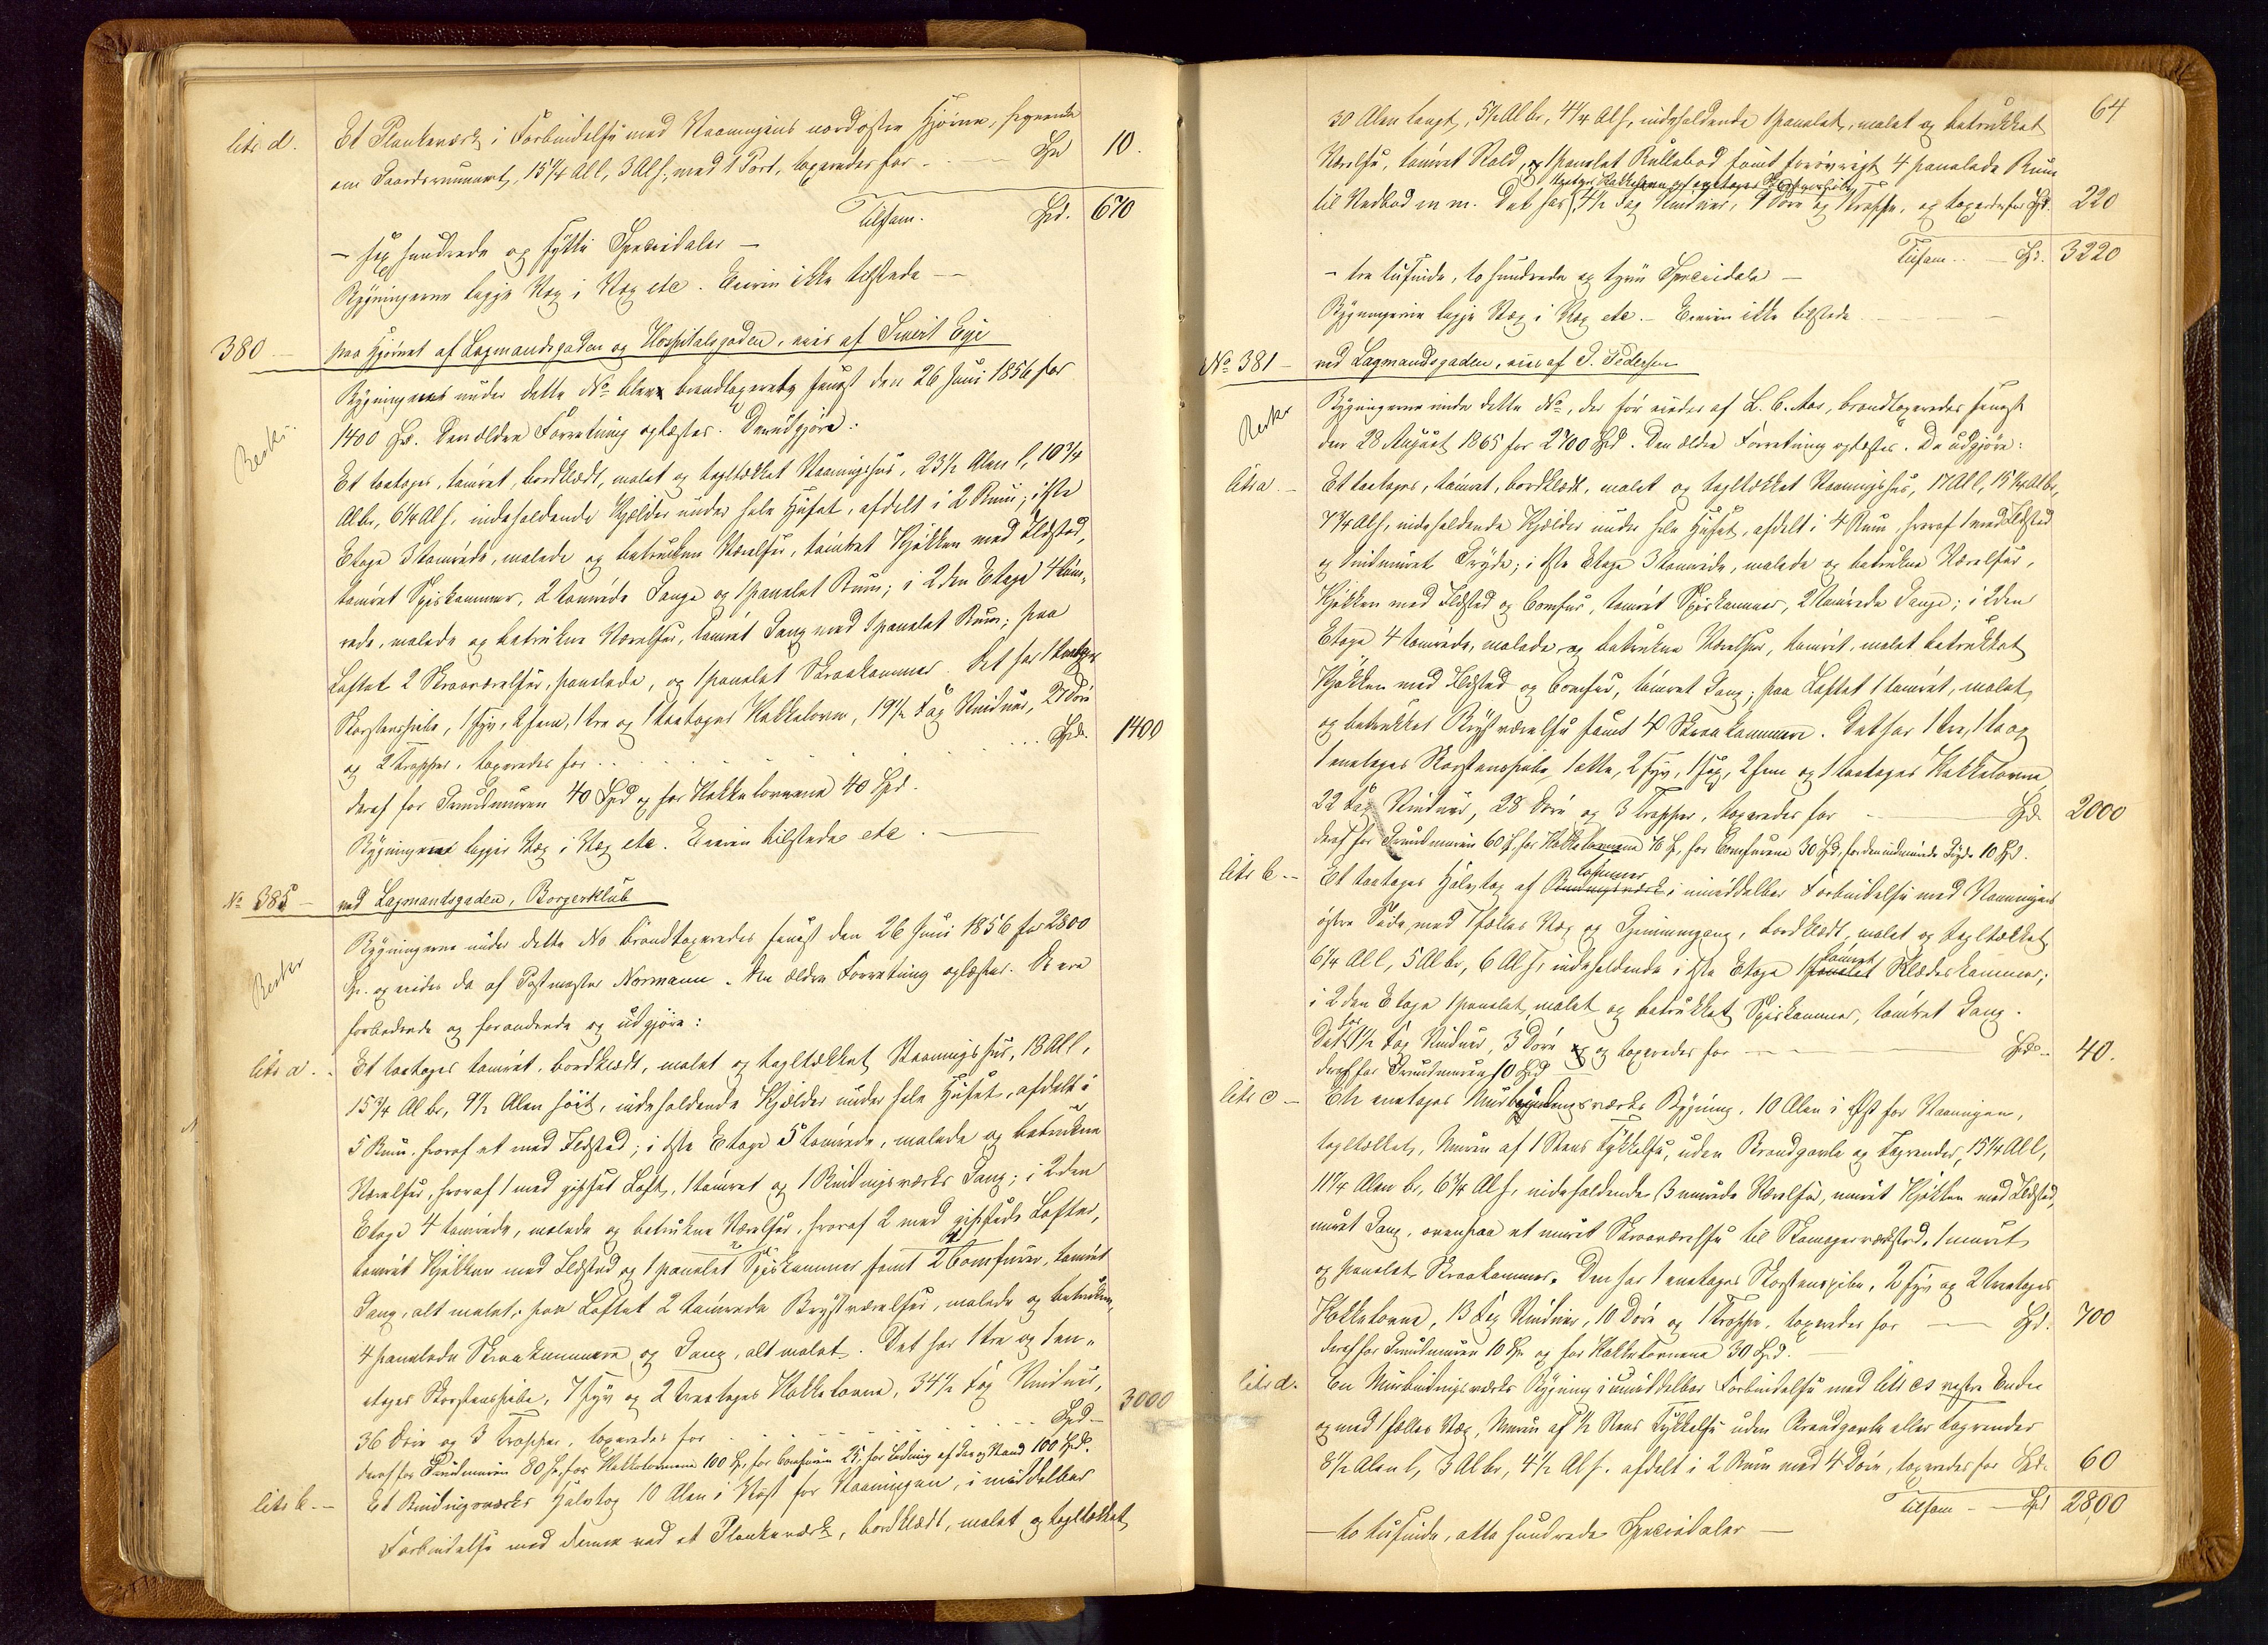 litr d. Et Plankeværk i Forbindelse med Vaaningens nordøstre Hjørne, hegnende
om Gaardsrummet, 15 1/4 Al l, 3 Al h, med 1 Port, taxeredes for - - Spd 10.
Tilsam. Spd. 670
- sex hundrede og sytti Speciedaler -
Bygningerne ligge Væg i Væg etc. Eieren ikke tilstede --
380 - paa Hjørnet af Lagmandsgaden og Hospitalsgaden, eies af Smit Eye
Beskr. Bygningen under dette No blev brandtaxeret senest den 26 Juni 1856 for
1400 Spd. Den ældre Forretning oplæstes. Den udgjøre:
Et toetages, tømret, bordklædt, malet og tagltækket Vaaningshus, 23 1/2 Alen l, 10 3/4
Al br, 6 1/4 Al h, indeholdende Kjelder under hele Huset, afdelt i 2 Rum; i 1ste
Etage 3 tømrede, malede og betrukne Værelser, tømret Kjøkken med Ildsted,
tømret Spiskammer, 2 tømrede Gange og 1 panelet Rum; i 2den Etage 4 tøm-
rede, malede og betrukne Værelser, tømret Gang med 1 panelet Rum; paa
Loftet 2 Skraaværelser, panelede, og 1 panelet Skraakammer. Det har 1 toetages
Skorstenspibe, 1 syv, 2 fem, 1 tre og 1 toetages Kakkelovn, 19 1/2 Fag Vinduer, 21 Døre
og 2 Trapper, taxeredes for . . . . . Spd. 1400
deraf for Grundmuren 40 Spd og for Kakkelovnene 40 Spd.
Bygningen ligger Væg i Væg etc. Eieren tilstede etc. -
No 385 - ved Lagmandsgaden, Borgerklub
Beskr Bygningerne under dette No brandtaxeredes senest den 26 Juni 1856 for 2800
Sp. og eiedes da af Postmester Normann. Den ældre Forretning oplæstes. De ere
forbedrede og forandrede og udgjøre:
litr a. Et toetages tømret, bordklædt, malet og tagltækket Vaaningshus, 18 Al l,
15 3/4 Al br, 9 1/2 Alen høit, indeholdende Kjælder under hele Huset, afdelt i
5 Rum, hvoraf et med Ildsted; i 1ste Etage 5 tømrede, malede og betrukne
Værelser, hvoraf 1 med gipset Loft, 1 tømret og 1 Bindingsværks Gang; i 2den
Etage 4 tømrede, malede og betrukne Værelser, hvoraf 2 med gipsede Lofter,
tømret Kjøkken med Ildsted og 1 panelet Spiskammer samt 2 Comfurer, tømret
Gang, alt malet; paa Loftet 2 tømrede Brystværelser, malede og betrukne,
4 panelede Skraakammere og Gang, alt malet. Det har 1 tre og 1 en-
etages Skorstenspibe, 7 syv og 2 treetages Kakkelovne, 34 1/2 Fag Vinduer,
36 Døre og 3 Trapper, taxeredes for . . . . Spd - 3000
deraf for Grundmuren 80 Sp, for Kakkelovnene 100 Sp, for Comfuren 25, for Ledning af Gas og Vand 100 Spd.
litr b. - Et Bindingsværks Halvtag 10 Alen i Vest for Vaaningen, i middelbar
Forbindelse med denne ved et Plankeværk, bordklædt, malet og tagltækket
64
30 Alen langt, 5 1/2 Al br, 4 1/4 Al h, indeholdende 1 panelet, malet og betrukket
Værelse, tømret Stald, og 1 panelet Rullebod samt forøvrigt 4 panelede Rum
til Vedbod m m. Det har 4 1/2 Fag Vinduer, 9 Døre og 1 Trappe, og taxeredes for Spd. 220
Tilsam. - Spd. 3220
- tre tusinde, to hundrede og tyve Speciedaler -
Bygningerne ligge Væg i Væg etc. - Eieren ikke tilstede. -
No 381 - ved Lagmandsgaden, eies af P. Pedersen
Beskr Bygningerne under dette No, der før eiedes af L. C. Aas, brandtaxeredes senest
den 28 August 1865 for 2700 Spd. Den ældre Forretning oplæstes. De udgjøre:
litr a. - Et toetages, tømret, bordklædt, malet og tagltækket Vaaningshus, 17 Al l, 15 1/4 Al br,
7 3/4 Al h, indeholdende Kjælder under hele Huset, afdelt i 4 Rum, hvoraf 1 med Ildsted
og indmuret Gryde; i 1ste Etage 3 tømrede, malede og betrukne Værelser,
Kjøkken med Ildsted og Comfur, tømret Spiskammer, 2 tømrede Gange; i 2den
Etage 4 tømrede, malede og betrukne Værelser, tømret, malet betrukket
Kjøkken med Ildsted og Comfur, tømret Gang; paa Loftet 1 tømret, malet
og betrukket Brystværelse samt 4 Skraakammere. Det har 1 tre, 1 to og
1 enetages Skorstenspibe, 1 otte, 2 syv, 1 sex, 2 fem og 1 toetages Kakkelovne
22 Fag Vinduer, 28 Døre og 3 Trapper, taxeredes for - Spd. 2000
deraf for Grundmuren 60 Sp, for Kakkelovnene 70 Sp, for Comfurene 30 Spd, for den indmurede Gryde 10 Spd.
litr b. - Et toetages Halvtag af Tømmer i umiddelbar Forbindelse med Vaaningens
østre Side, med 1 fælles Væg og Gjennemgang, bordklædt, malet og tagltækket
6 1/4 Al l, 5 Al br, 6 Al h, indeholdende i 1ste Etage 1 tømret Klædeskammer;
i 2den Etage 1 panelet, malet og betrukket Spiskammer, tømret Gang.
Det har 1 1/2 Fag Vinduer, 3 Døre og taxeredes for - - Spd - 40.
deraf for Grundmuren 10 Spd
litr c - En enetages Murbindingsværks Bygning, 10 Alen i Øst for Vaaningen,
tagltækket, Muren af 1 Stens Tykkelse, uden Brandgavle og Tagrender, 15 1/4 Al l,
11 1/4 Alen br, 6 3/4 Al h, indeholdende 3 murede Værelser, muret Kjøkken med Ildsted,
muret Gang, ovenpaa et muret Skraaværelse til Skomagerværksted, 1 muret
og panelet Skraakammer. Den har 1 enetages Skorstenspibe, 2 syv og 2 treetages
Kakkelovne, 13 Fag Vinduer, 10 Døre og 1 Trappe, taxeredes for - Spd. 700
deraf for Grundmuren 10 Sp og for Kakkelovnene 30 Spd. -
litr d. En Murbindingsværks Bygning i umiddelbar Forbindelse med litr c's vestre Ende
og med 1 fælles Væg, Muren af 1/2 Stens Tykkelse uden Brandgavle eller Tagrender
8 1/2 Alen l, 3 Al br, 4 1/2 Al h. afdelt i 2 Rum med 4 Døre, taxeredes for Spd. 60
Tilsam - Spd 2800
- to tusinde, otte hundrede Speciedaler -